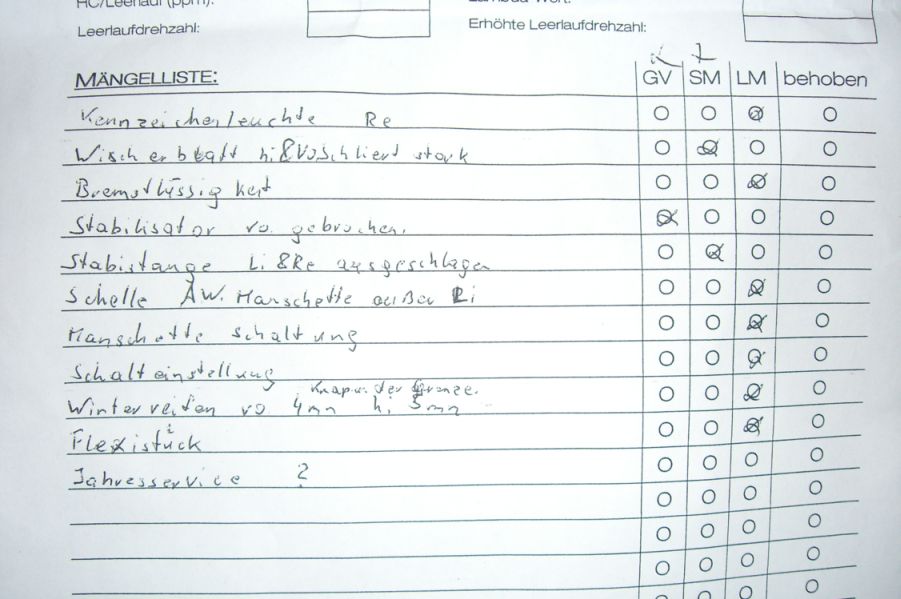 HC/Leerlauf (ppm):
Leerlaufdrehzahl:
Erhöhte Leerlaufdrehzahl:
MÄNGELLISTE: GV SM LM behoben
Kennzeichenleuchte Re
Wischerblatt hi&vo schliert stark
Bremsflüssigkeit
Stabilisator vo. gebrochen.
Stabistange Li&Re ausgeschlagen
Schelle AW. Manschette außen Li
Manschette Schaltung
Schalteinstellung
Knapp der Grenze.
Winterreifen vo 4mm hi 5mm
Flexistück
Jahresservice ?